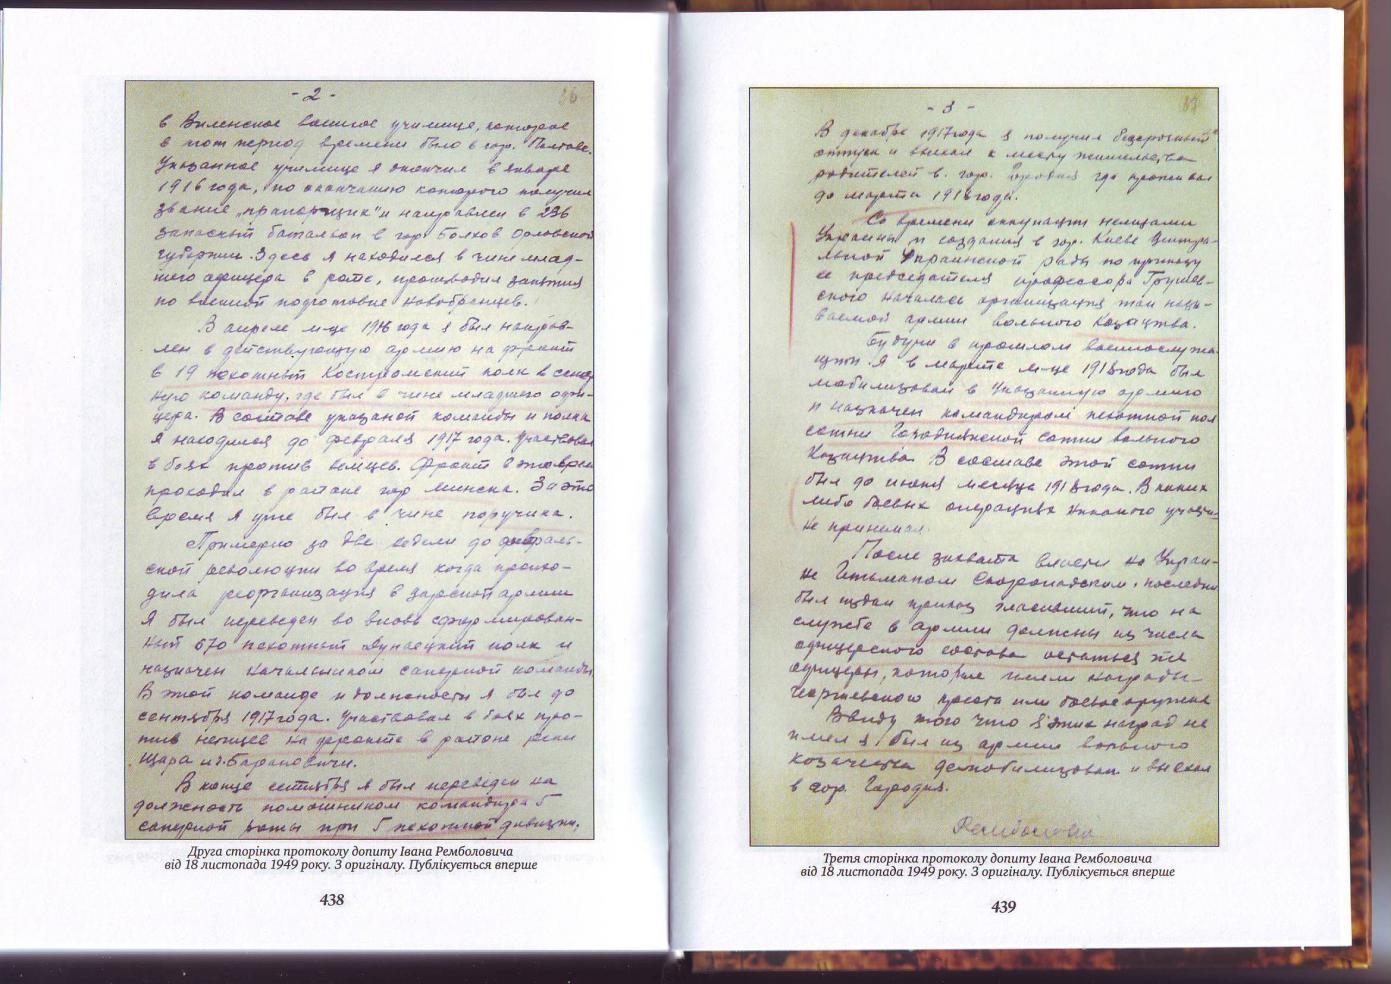 - 2 -
в Виленское военное училище, которое
в тот период времени было в гор. Полтаве.
Указанное училище я окончил в январе
1916 года, по окончанию которого получил
звание „прапорщик" и направлен в 236
запасный батальон в гор. Болхов Орловской
губернии. Здесь я находился в чине млад-
шего офицера в роте, производил занятия
по военной подготовке новобранцев.
В апреле м-це 1916 года я был направ-
лен в действующую армию на фронт
в 19 пехотный Костромский полк в сапер-
ную команду, где был в чине младшего офи-
цера. В составе указаной команды и полка
я находился до февраля 1917 года. Участвовал
в боях против немцев. Фронт в это время
проходил в районе гор Минска. За это
время я уже был в чине поручика.
Примерно за две недели до февраль-
ской революции во время когда происхо-
дила реорганизация в царской армии
я был переведен во вновь сформирован-
ный 670 пехотный Дунаецкий полк и
назначен начальником саперной команды
В этой команде и должности я был до
сентября 1917 года. Участвовал в боях про-
тив немцев на фронте в районе реки
Щара и г. Барановичи.
В конце сентября я был переведен на
должность помошником командира 5
саперной роты при 5 пехотной дивизии,
Друга сторінка протоколу допиту Івана Ремболовича
від 18 листопада 1949 року. З оригіналу. Публікується вперше
438
- 3 -
В декабре 1917 года я получил безсрочный
отпуск и выехал к месту жительства
родителей в гор. Городня где проживал
до марта 1918 года.
Со времени оккупации немцами
Украины и создания в гор. Киеве Центра-
льной Украинской рады по приказу
ее председателя профессора Грушев-
ского началась организация так назы-
ваемой армии вольного козацтва.
Будучи в прошлом военнослужа-
щим я в марте м-це 1918 года был
мобилизован в указанную армию
и назначен командиром пехотной пол
сотни Городнянской сотни вольного
козацтва. В составе этой сотни
был до июня месяца 1918 года. В каких
либо боевых операциях никакого участи
не принимал.
После захвата власти на Украи-
не Гетьманом Скоропадским, последним
был издан приказ гласивший, что на
службе в армии должны из числа
офицерского состава остаться те
офицеры, которые имели награды
Георгиевского креста или боевое оружие
Ввиду того что я этих наград не
имел я был из армии вольного
козачества демобилизован и выехал
в гор. Городня.
Ремболович
Третя сторінка протоколу допиту Івана Ремболовича
від 18 листопада 1949 року. З оригіналу. Публікується вперше
439